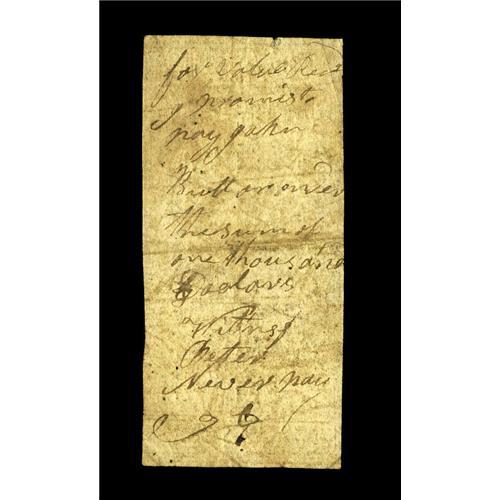 for Value Recd
I promis to
pay John
Britt or order
the sum of
one thousand
Dodars
Witnes
Peter
Never pay